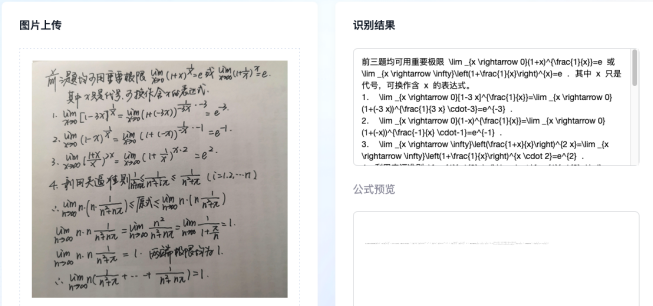 图片上传
识别结果
前三题均可用重要极限 lim x→0 (1+x)^{1/x}=e 或 lim x→∞ (1+1/x)^x=e.
其中 x 只是代号,可换作含 x 的表达式.
1. lim x→0 [1-3x]^{1/x} = lim x→0 (1+(-3x))^{1/-3x · -3} = e^{-3}.
2. lim x→0 (1-x)^{1/x} = lim x→0 (1+(-x))^{1/-x · -1} = e^{-1}.
3. lim x→∞ (1+x/x)^{2x} = lim x→∞ (1+1/x)^{x·2} = e^2.
4. 利用夹逼准则 1/n²+nπ ≤ 1/n²+iπ ≤ 1/n²+π (i=1.2.…n)
∴ lim n→∞ n·(n·1/n²+nπ) ≤ 原式 ≤ lim n→∞ n·(n 1/n²+π)
lim n→∞ n·n 1/n²+nπ = lim n→∞ n²/n²+nπ = lim n→∞ 1/1+π/n = 1.
lim n→∞ n·n 1/n²+π = 1. 两端极限均为1.
∴ lim n→∞ n(1/n²+π + … + 1/n²+nπ) = 1.
前三题均可用重要极限 \lim _{x \rightarrow 0}(1+x)^{\frac{1}{x}}=e 或
\lim _{x \rightarrow \infty}\left(1+\frac{1}{x}\right)^{x}=e . 其中 x 只是
代号,可换作含 x 的表达式.
1. \lim _{x \rightarrow 0}[1-3 x]^{\frac{1}{x}}=\lim _{x \rightarrow 0}
(1+(-3 x))^{\frac{1}{3 x} \cdot-3}=e^{-3} .
2. \lim _{x \rightarrow 0}(1-x)^{\frac{1}{x}}=\lim _{x \rightarrow 0}
(1+(-x))^{\frac{-1}{x} \cdot-1}=e^{-1} .
3. \lim _{x \rightarrow \infty}\left(\frac{1+x}{x}\right)^{2 x}=\lim _{x
\rightarrow \infty}\left(1+\frac{1}{x}\right)^{x \cdot 2}=e^{2} .
公式预览